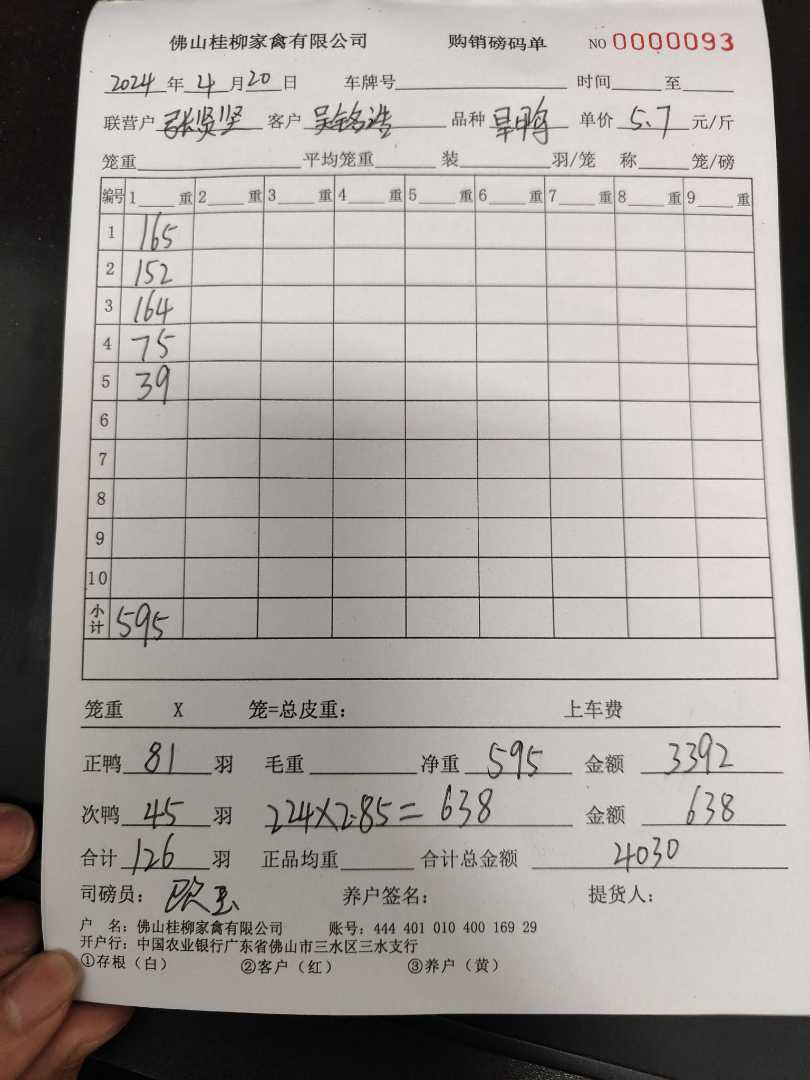 佛山桂柳家禽有限公司 购销磅码单 NO 0000093
2024年4月20日 车牌号 时间 至
联营户 张贤坚 客户 吴铭浩 品种 旱鸭 单价 5.7 元/斤
笼重 平均笼重 装 羽/笼 称 笼/磅
编号 1 重 2 重 3 重 4 重 5 重 6 重 7 重 8 重 9 重
1 165
2 152
3 164
4 75
5 39
6
7
8
9
10
小计 595
笼重 X 笼=总皮重: 上车费
正鸭 81 羽 毛重 净重 595 金额 3392
次鸭 45 羽 224×2.85=638 金额 638
合计 126 羽 正品均重 合计总金额 4030
司磅员: 养户签名: 提货人:
户 名: 佛山桂柳家禽有限公司 账号: 444 401 010 400 169 29
开户行: 中国农业银行广东省佛山市三水区三水支行
①存根(白) ②客户(红) ③养户(黄)